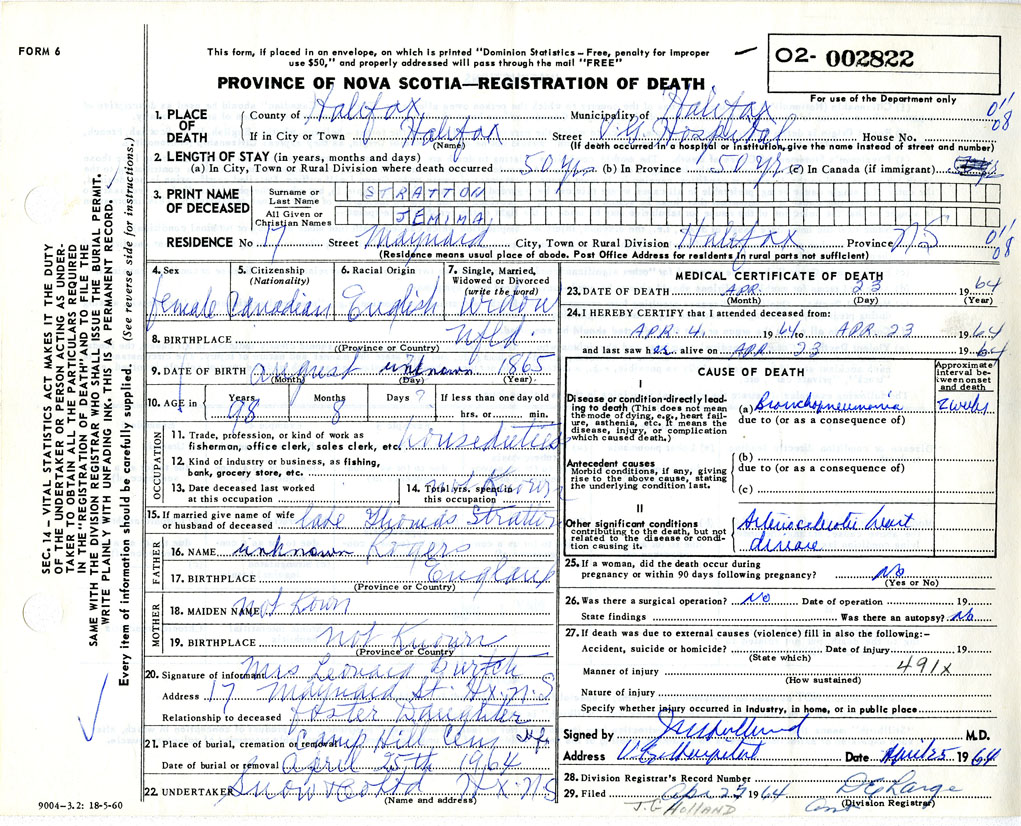 FORM 6
This form, if placed in an envelope, on which is printed "Dominion Statistics – Free, penalty for improper
use $50," and properly addressed will pass through the mail "FREE"
02- 002822
PROVINCE OF NOVA SCOTIA—REGISTRATION OF DEATH
For use of the Department only
1. PLACE OF DEATH
County of Halifax Municipality of Halifax
If in City or Town Halifax Street V.G. Hospital House No.
(Name) (If death occurred in a hospital or institution, give the name instead of street and number)
2. LENGTH OF STAY (in years, months and days)
(a) In City, Town or Rural Division where death occurred 50 yrs (b) In Province 50 yr (c) In Canada (if immigrant)
3. PRINT NAME OF DECEASED
Surname or Last Name STRATTON
All Given or Christian Names JEMIMA
RESIDENCE No. 17 Street Maynard City, Town or Rural Division Halifax Province N S
(Residence means usual place of abode. Post Office Address for residents in rural parts not sufficient)
4. Sex female
5. Citizenship (Nationality) Canadian
6. Racial Origin English
7. Single, Married, Widowed or Divorced (write the word) Widow
8. BIRTHPLACE Nfld
(Province or Country)
9. DATE OF BIRTH August unknown 1865
(Month) (Day) (Year)
10. AGE in Years 98 Months 8 Days ? If less than one day old hrs. or min.
OCCUPATION
11. Trade, profession, or kind of work as fisherman, office clerk, sales clerk, etc. houseduties
12. Kind of industry or business, as fishing, bank, grocery store, etc.
13. Date deceased last worked at this occupation
14. Total yrs. spent in this occupation not Known
15. If married give name of wife or husband of deceased late Thomas Stratton
FATHER
16. NAME unknown Rogers
17. BIRTHPLACE England
(Province or Country)
MOTHER
18. MAIDEN NAME Not Kown
19. BIRTHPLACE not Known
(Province or Country)
20. Signature of informant Mrs Leonard Burtch
Address 17 Maynard St. Hx. N.S
Relationship to deceased foster Daughter
21. Place of burial, cremation or removal Camp Hill Cem Hfx
Date of burial or removal April 25th 1964
22. UNDERTAKER Snow & Co Ltd Hx. N S
(Name and address)
MEDICAL CERTIFICATE OF DEATH
23. DATE OF DEATH APR. 23 1964
(Month) (Day) (Year)
24. I HEREBY CERTIFY that I attended deceased from:
APR. 4, 1964 to APR 23 1964
and last saw her alive on APR. 23 1964
CAUSE OF DEATH
Approximate interval between onset and death
I
Disease or condition-directly leading to death (This does not mean the mode of dying, e.g., heart failure, asthenia, etc. It means the disease, injury, or complication which caused death.)
(a) Bronchopneumonia 2 weeks
due to (or as a consequence of)
Antecedent causes
Morbid conditions, if any, giving rise to the above cause, stating the underlying condition last.
(b)
due to (or as a consequence of)
(c)
II
Other significant conditions contributing to the death, but not related to the disease or condition causing it.
Arteriosclerotic heart
disease
25. If a woman, did the death occur during
pregnancy or within 90 days following pregnancy? No
(Yes or No)
26. Was there a surgical operation? No Date of operation 19
State findings Was there an autopsy? No
27. If death was due to external causes (violence) fill in also the following:–
Accident, suicide or homicide? Date of injury 19
(State which)
Manner of injury 491x
(How sustained)
Nature of injury
Specify whether injury occurred in industry, in home, or in public place
Signed by J G Holland M.D.
Address V.G. Hospital Date April 25 1964
28. Division Registrar's Record Number
29. Filed Apr 27 1964 D E Large
J.G HOLLAND (Division Registrar)
SEC. 14 – VITAL STATISTICS ACT MAKES IT THE DUTY
OF THE UNDERTAKER OR PERSON ACTING AS UNDER-
TAKER TO OBTAIN ALL THE PARTICULARS REQUIRED
IN THE "REGISTRATION OF DEATH" AND TO FILE THE
SAME WITH THE DIVISION REGISTRAR WHO SHALL ISSUE THE BURIAL PERMIT.
WRITE PLAINLY WITH UNFADING INK. THIS IS A PERMANENT RECORD.
Every item of information should be carefully supplied. (See reverse side for instructions.)
9004–3.2: 18-5-60